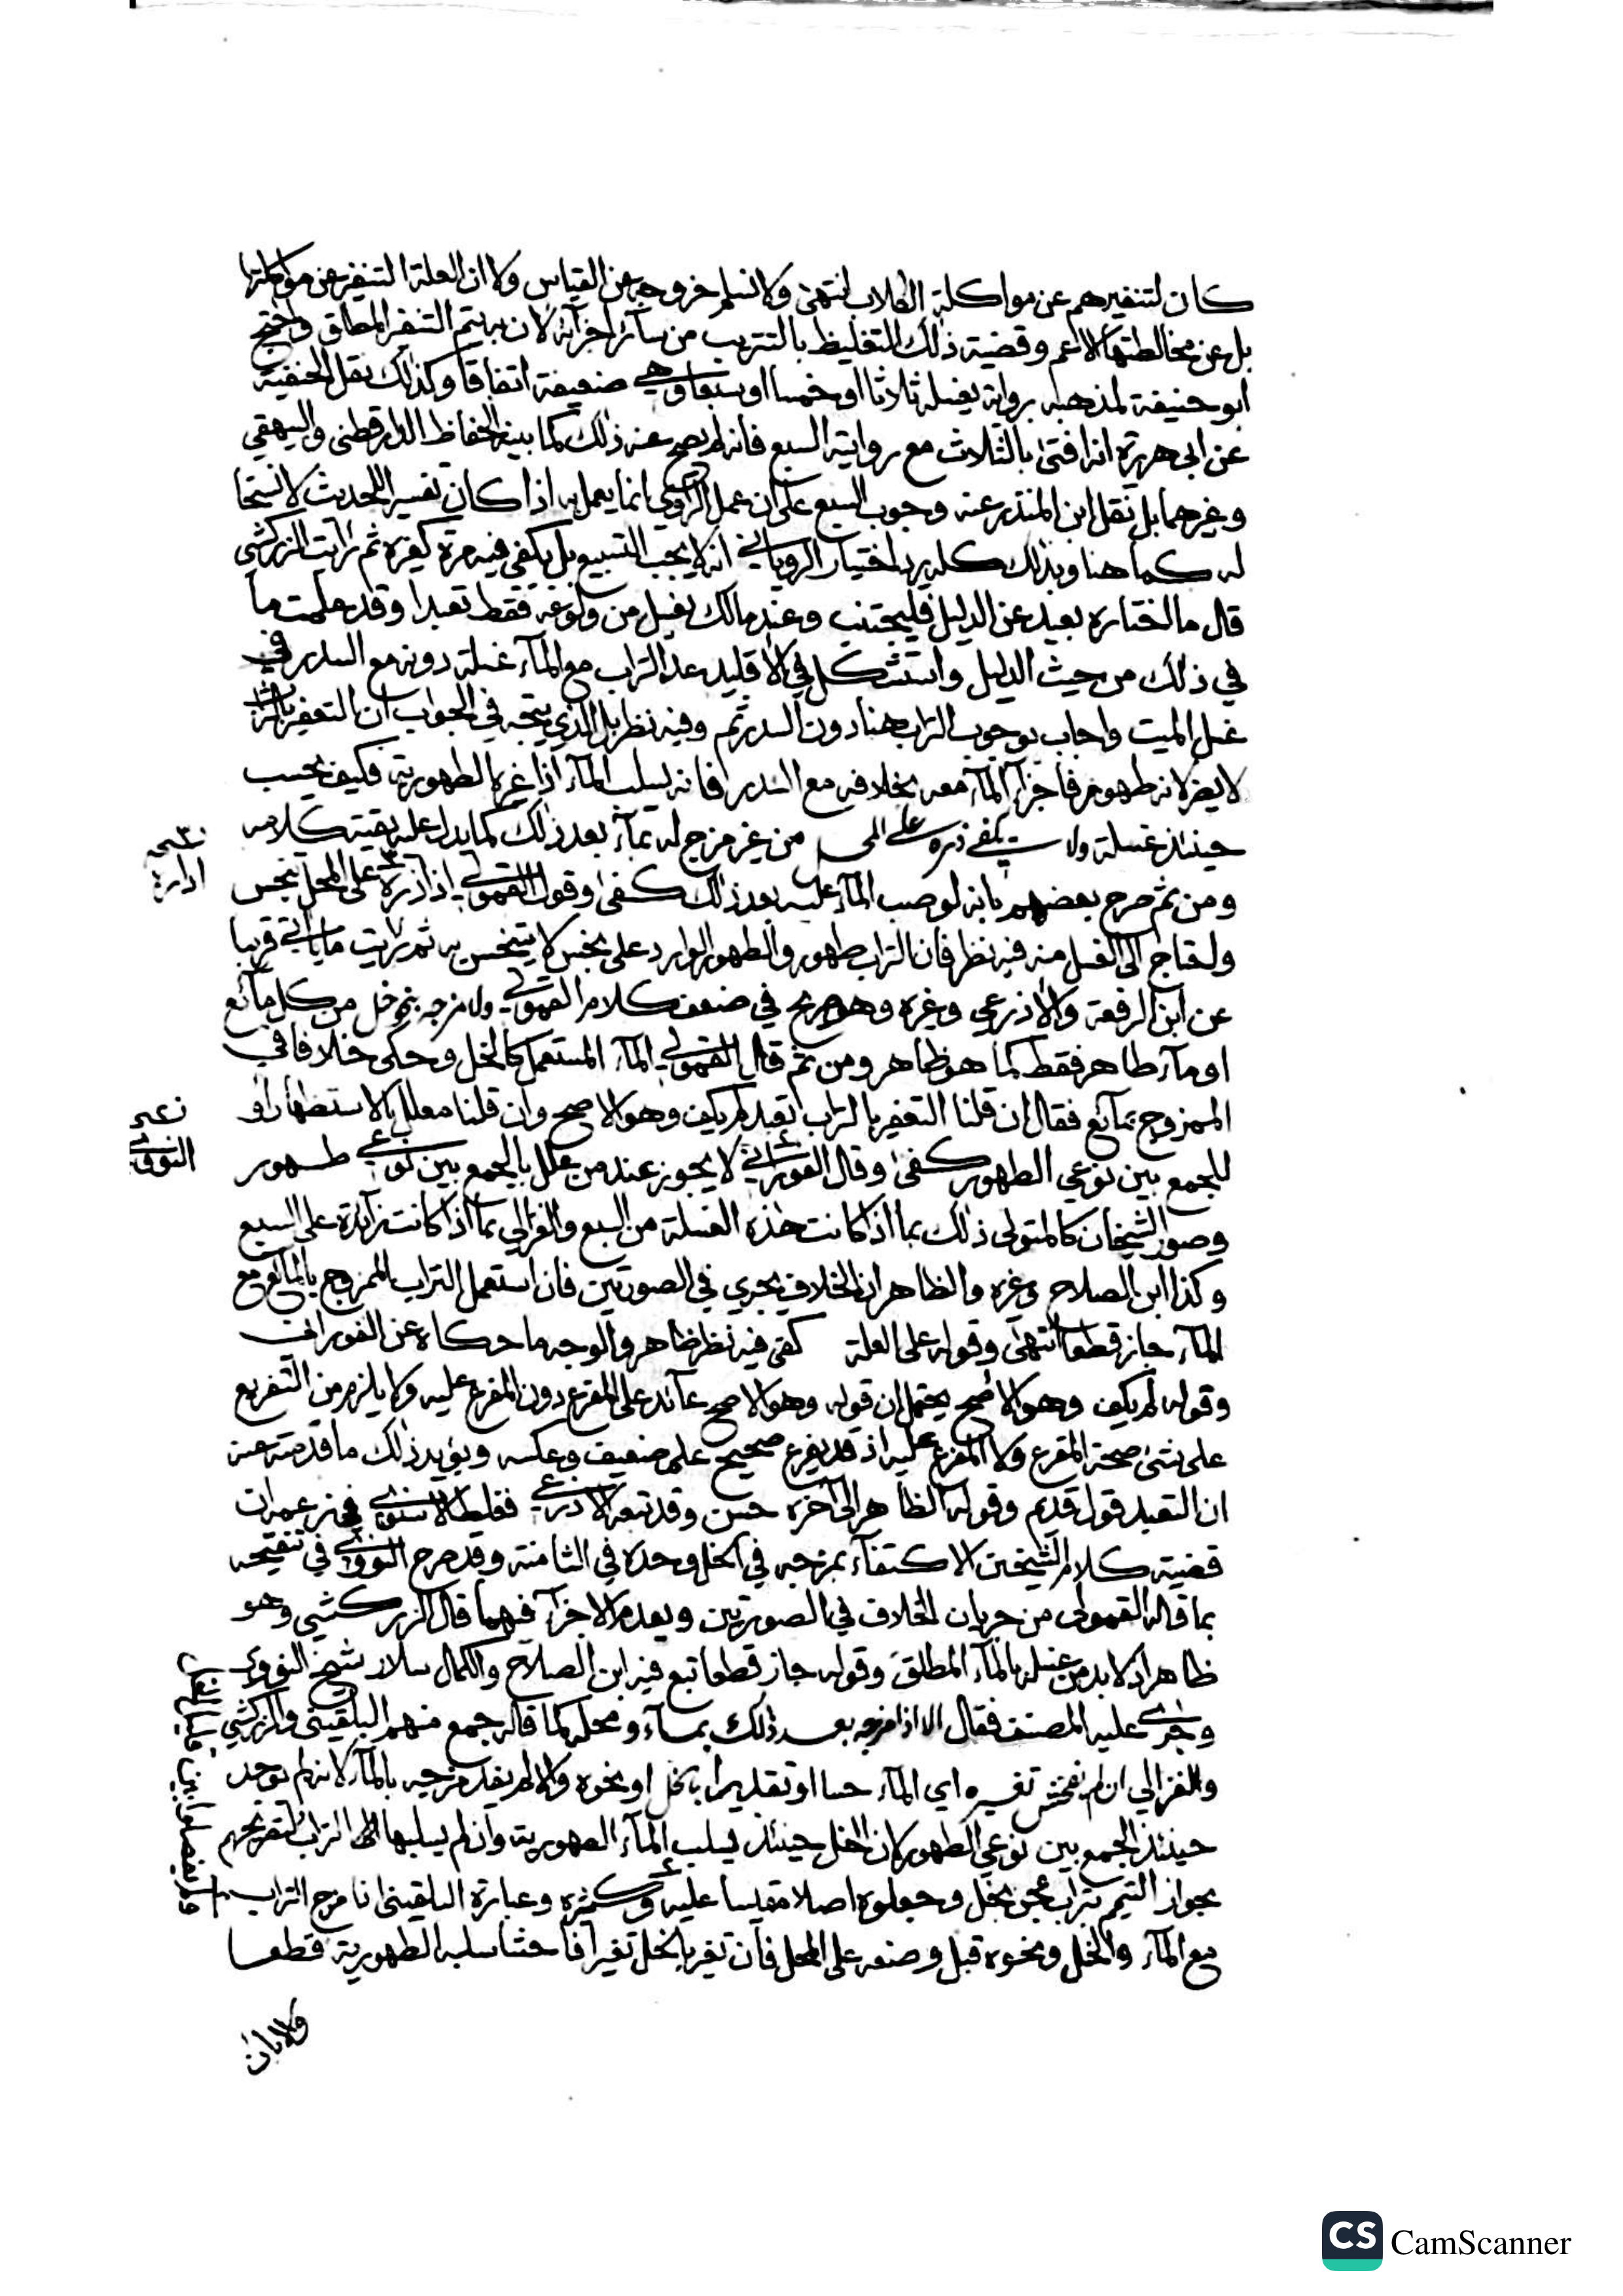 كان لتنفيرهم عن مواكلة الكلاب انتهى ولا نسلم خروجه عن القياس ولا ان العلة التنفير عن مواكلتها
بل عن مخالطتها الاعم وقضية ذلك التغليظ بالتتريب من سائر اجزائه لان به يتم التنفير المطلق واحتج
ابو حنيفة لمذهبه برواية يغسله ثلاثا او خمسا او سبعا وهي ضعيفة اتفاقا وكذلك نقل الحنفية
عن ابي هريرة انه افتى بالثلاث مع روايته السبع فانه لم يصح عنه ذلك كما بينه الحفاظ الدارقطني والبيهقي
وغيرهما بل نقل ابن المنذر عنه وجوب السبع على ان عمل الراوي انما يعمل به اذا كان تفسيرا للحديث لا نسخا
له كما هنا وبذلك كله يرد اختيار الروياني انه لا يجب التسبيع بل يكفي فيه مرة كغيره ثم رأيت الزركشي
قال ما اختاره بعيد عن الدليل فليجتنب وعند مالك يغسل من ولوغه فقط تعبدا وقد علمت ما
في ذلك من حيث الدليل واستشكل في الاقليد عد التراب مع الماء غسلة دونه مع السدر في
غسل الميت واجاب بوجوب التراب هنا دون السدر ثم وفيه نظر بل الذي يتجه في الجواب ان التعفير بالتراب
لا يضر لانه طهور فاجزأ الماء معه بخلافه مع السدر فانه يسلب الماء اذا غيره الطهورية فكيف يحسب
حينئذ غسلة ولا يكفي ذره على المحل من غير مزج له بماء بعد ذلك كما يدل عليه بقية كلامه
ومن ثم صرح بعضهم بانه لو صب الماء عليه بعد ذلك كفى وقول القمولي اذا ذره على المحل تنجس
واحتاج الى الغسل منه فيه نظر فان التراب طهور والطهور الوارد على نجس لا يتنجس به ثم رأيت ما يأتي قريبا
عن ابن الرفعة والاذرعي وغيره وهو صريح في ضعف كلام القمولي ولا مزجه بنحو خل من كل مائع
او ماء طاهر فقط كما هو ظاهر ومن ثم قال القمولي الماء المستعمل كالخل وحكى خلافا في
الممزوج بمائع فقال ان قلنا التعفير بالتراب تعبد لم يكف وهو الاصح وان قلنا معلل بالاستظهار او
للجمع بين نوعي الطهور كفى وقال الفوراني لا يجوز عند من علل بالجمع بين نوعي طهور
وصور الشيخان كالمتولي ذلك بما اذا كانت هذه الغسلة من السبع والغزالي بما اذا كانت زائدة على السبع
وكذا ابن الصلاح وغيره والظاهر ان الخلاف يجري في الصورتين فان استعمل التراب الممزوج بالمائع مع
الماء جاز قطعا انتهى وقوله على العلة كفى فيه نظر ظاهر والوجه ما حكاه عن الفوراني
وقوله لم يكف وهو الاصح يحتمل ان قوله وهو الاصح عائد على المفرع دون المفرع عليه ولا يلزم من التفريع
على شئ صحة المفرع ولا المفرع عليه اذ قد يفرع صحيح على ضعيف وعكسه ويؤيد ذلك ما قدمته عنه
ان التعبد قول قديم وقوله الظاهر الى آخره حسن وقد تبعه الاذرعي فغلط الاسنوي في زعمه ان
قضية كلام الشيخين الاكتفاء بمزجه في الخل وحده في الثامنة وقد صرح النووي في تنقيحه
بما قاله القمولي من جريان الخلاف في الصورتين وبعدم الاجزاء فيهما قال الزركشي وهو
ظاهر اذ لا بد من غسله بالماء المطلق وقوله جاز قطعا تبع فيه ابن الصلاح والكمال سلار شيخ النووي
وجرى عليه المصنف فقال الا اذا مزجه بعد ذلك بماء ومحله كما قاله جمع منهم البلقيني والزركشي
والغزالي ان لم يفحش تغيره اي الماء حسا او تقديرا بالخل او نحوه والا لم يفد مزجه بالماء لانه لم يوجد
حينئذ الجمع بين نوعي الطهور لان الخل حينئذ يسلب الماء الطهورية وان لم يسلبها التراب لتصريحهم
بجواز التيمم بتراب عجن بخل وجعلوه اصلا مقيسا عليه وعبارة البلقيني اذا مزج التراب
مع الماء والخل ونحوه قبل وضعه على المحل فان تغير بالخل تغيرا فاحشا سلبه الطهورية قطعا
ولا بان